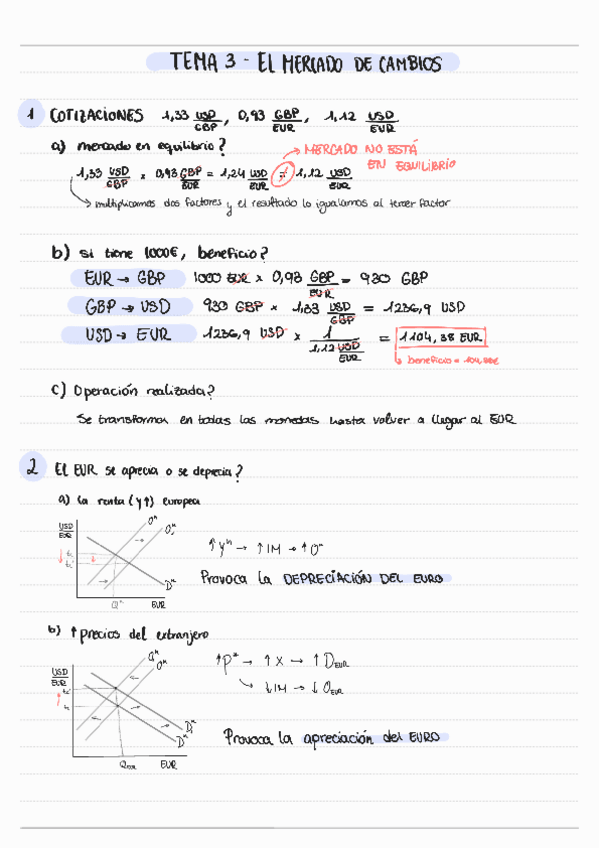 TEMA 3 - EL MERCADO DE CAMBIOS
1 COTIZACIONES 1,33 USD/GBP, 0,93 GBP/EUR, 1,12 USD/EUR
a) mercado en equilibrio?
→ MERCADO NO ESTÁ EN EQUILIBRIO
1,33 USD/GBP x 0,93 GBP/EUR = 1,24 USD/EUR ≠ 1,12 USD/EUR
→ multiplicamos dos factores y el resultado lo igualamos al tercer factor
b) si tiene 1000€, beneficio?
EUR → GBP 1000 EUR x 0,93 GBP/EUR = 930 GBP
GBP → USD 930 GBP x 1,33 USD/GBP = 1236,9 USD
USD → EUR 1236,9 USD x 1/1,12 USD/EUR = 1104,38 EUR
↳ beneficio = 104,38€
c) Operación realizada?
Se transforma en todas las monedas hasta volver a llegar al EUR
2 El EUR se aprecia o se deprecia?
a) la renta (y↑) europea
USD/EUR
↑yⁿ → ↑IM → ↑Oⁿ
Provoca la DEPRECIACIÓN DEL EURO
EUR
b) ↑precios del extranjero
USD/EUR
↑P* → ↑X → ↑D EUR
↳ ↓IM → ↓O EUR
Provoca la apreciación del EURO
EUR